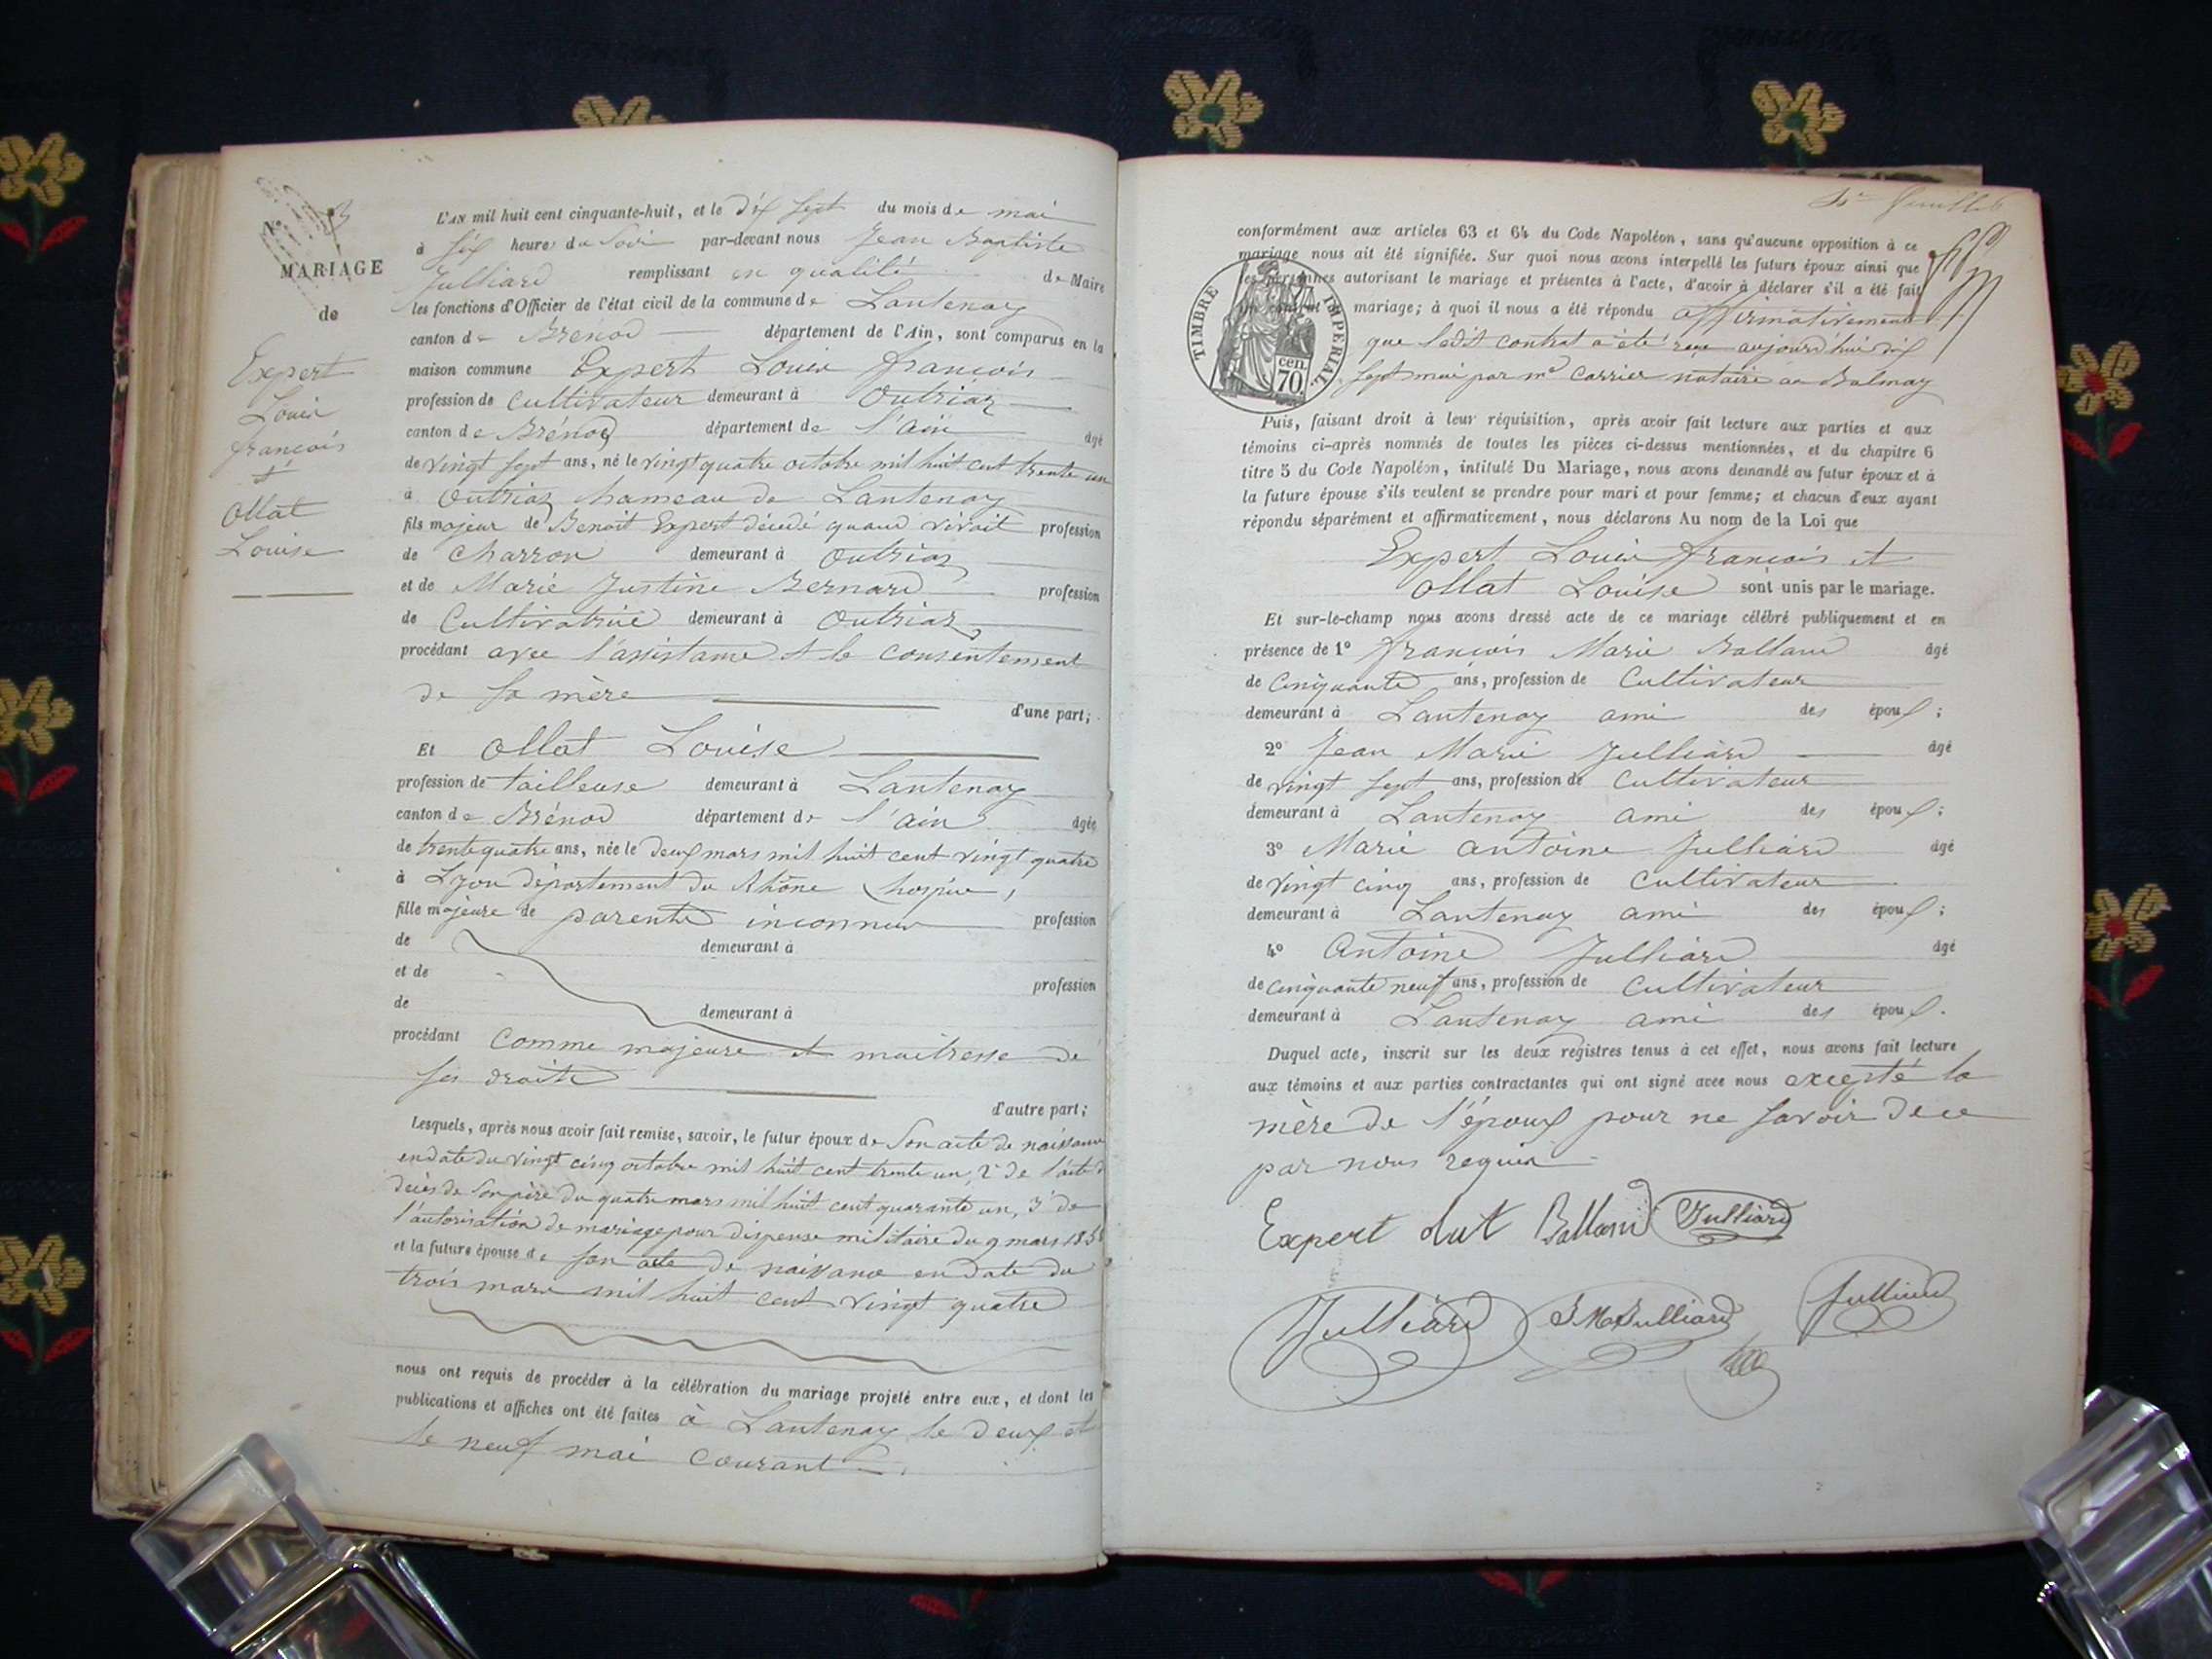 N° 3
MARIAGE
de
Expert
Louis
françois
et
Ollat
Louise
L'AN mil huit cent cinquante-huit, et le dix sept du mois de mai
à six heures du Soir par-devant nous Jean Baptiste
Julliard remplissant en qualité de Maire
les fonctions d'Officier de l'état civil de la commune de Lantenay
canton de Brenod département de l'Ain, sont comparus en la
maison commune Expert Louis françois
profession de Cultivateur demeurant à Outriaz
canton de Brénod département de l'ain âgé
de vingt sept ans, né le vingt quatre octobre mil huit cent trente un
à Outriaz hameau de Lantenay
fils majeur de Benoit Expert décédé quand vivait profession
de Charron demeurant à Outriaz
et de Marie Justine Bernard profession
de Cultivatrice demeurant à Outriaz
procédant avec l'assistance et le consentement
de sa mère d'une part;
Et Ollat Louise
profession de tailleuse demeurant à Lantenay
canton de Brénod département de l'ain âgée
de trente quatre ans, née le deux mars mil huit cent vingt quatre
à Lyon département du Rhône (hospice)
fille majeure de parents inconnus profession
de demeurant à
et de profession
de demeurant à
procédant comme majeure et maitresse de
ses droits
d'autre part;
Lesquels, après nous avoir fait remise, savoir, le futur époux de Son acte de naissance
en date du vingt cinq octobre mil huit cent trente un, 2° de l'acte de
décès de Son père du quatre mars mil huit cent quarante un, 3° de
l'autorisation de mariage pour dispense militaire du 9 mars 1858
et la future épouse de son acte de naissance en date du
trois mars mil huit cent vingt quatre
nous ont requis de procéder à la célébration du mariage projeté entre eux, et dont les
publications et affiches ont été faites à Lantenay le deux et
le neuf mai courant
conformément aux articles 63 et 64 du Code Napoléon, sans qu'aucune opposition à ce
mariage nous ait été signifiée. Sur quoi nous avons interpellé les futurs époux ainsi que
les personnes autorisant le mariage et présentes à l'acte, d'avoir à déclarer s'il a été fait
un contrat mariage; à quoi il nous a été répondu affirmativement
TIMBRE IMPÉRIAL.
cen
70
que ledit contrat a été reçu aujourd'hui dix
sept mai par me Carrier notaire au Balmay
Puis, faisant droit à leur réquisition, après avoir fait lecture aux parties et aux
témoins ci-après nommés de toutes les pièces ci-dessus mentionnées, et du chapitre 6
titre 5 du Code Napoléon, intitulé Du Mariage, nous avons demandé au futur époux et à
la future épouse s'ils veulent se prendre pour mari et pour femme; et chacun d'eux ayant
répondu séparément et affirmativement, nous déclarons Au nom de la Loi que
Expert Louis françois et
Ollat Louise sont unis par le mariage.
Et sur-le-champ nous avons dressé acte de ce mariage célébré publiquement et en
présence de 1° françois Marie Balland âgé
de Cinquante ans, profession de Cultivateur
demeurant à Lantenay ami des époux;
2° Jean Marie Julliard âgé
de vingt sept ans, profession de Cultivateur
demeurant à Lantenay ami des époux;
3° Marie antoine Julliard âgé
de vingt cinq ans, profession de cultivateur
demeurant à Lantenay ami des époux;
4° Antoine Julliard âgé
de cinquante neuf ans, profession de Cultivateur
demeurant à Lantenay ami des époux.
Duquel acte, inscrit sur les deux registres tenus à cet effet, nous avons fait lecture
aux témoins et aux parties contractantes qui ont signé avec nous excepté la
mère de l'époux pour ne savoir de ce
par nous requis
Expert Olat Balland Julliard
Julliard J M Julliard Julliard